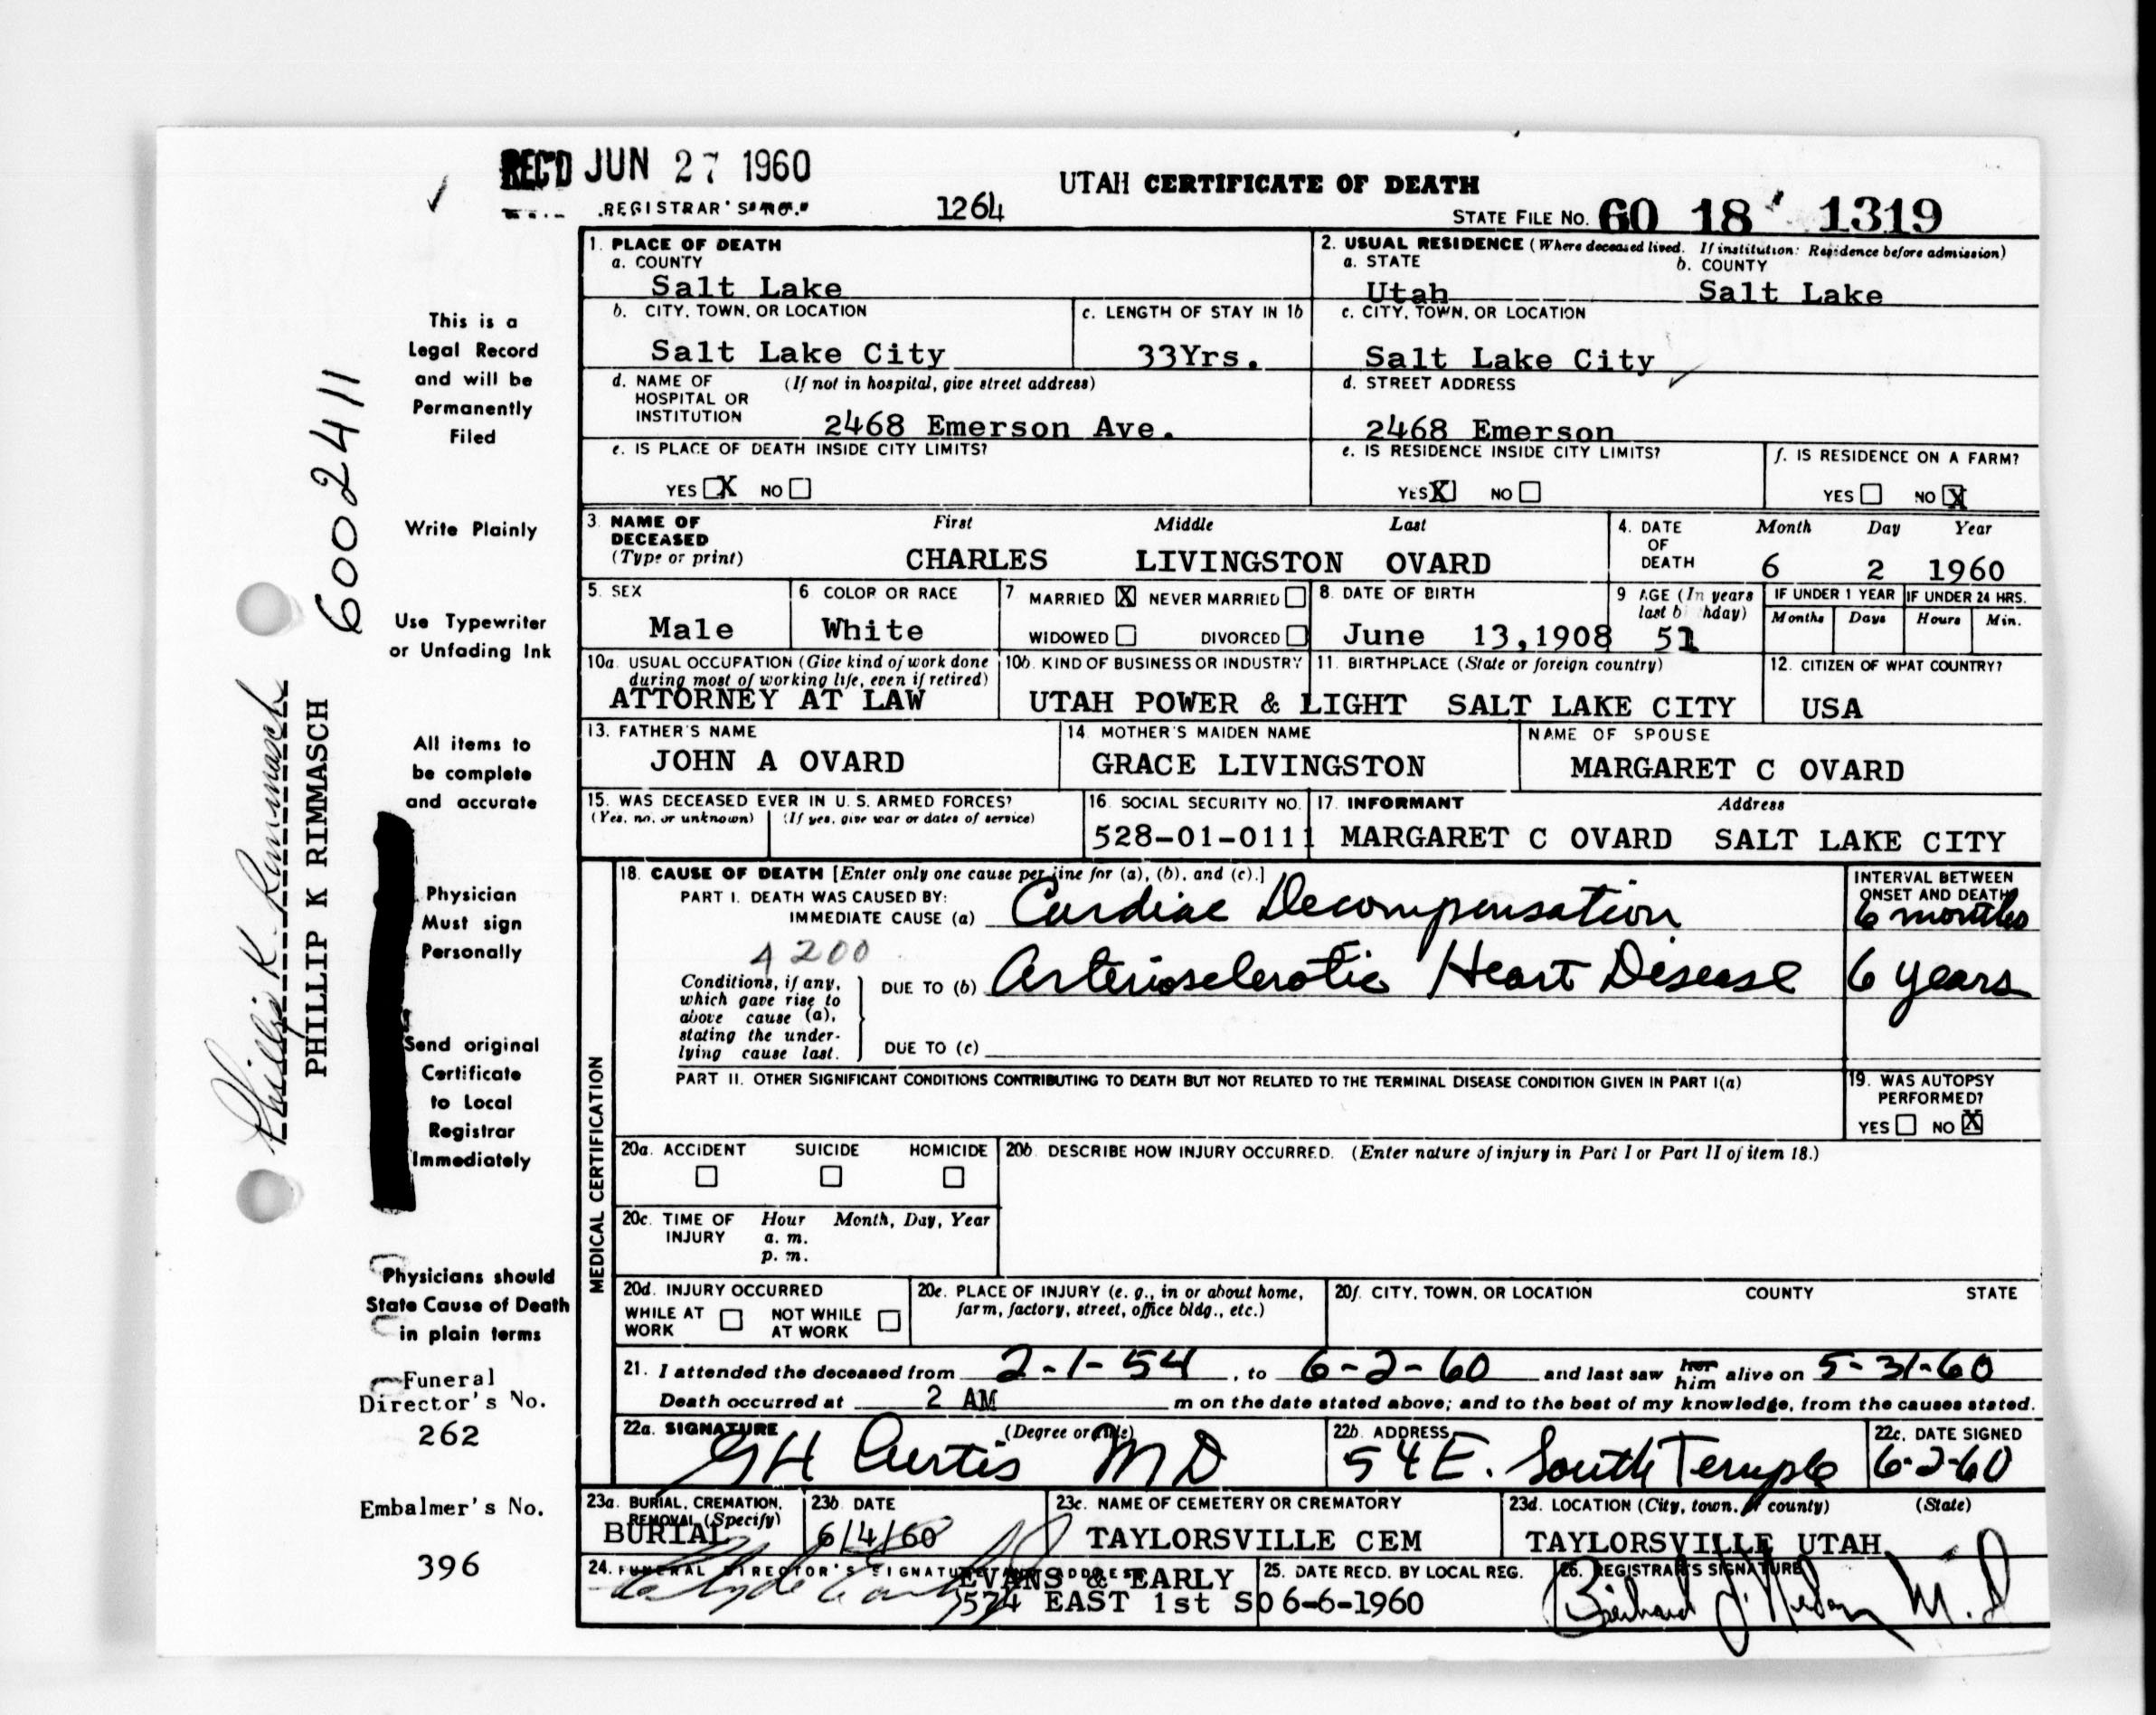 REC'D JUN 27 1960
REGISTRAR'S NO. 1264
UTAH CERTIFICATE OF DEATH
STATE FILE NO. 60 18 1319
This is a
Legal Record
and will be
Permanently
Filed
Write Plainly
Use Typewriter
or Unfading Ink
All items to
be complete
and accurate
Physician
Must sign
Personally
Send original
Certificate
to Local
Registrar
Immediately
Physicians should
State Cause of Death
in plain terms
Funeral
Director's No.
262
Embalmer's No.
396
6002411
Phillip K. Rimmasch
PHILLIP K RIMMASCH
1. PLACE OF DEATH
a. COUNTY
Salt Lake
2. USUAL RESIDENCE (Where deceased lived. If institution: Residence before admission)
a. STATE b. COUNTY
Utah Salt Lake
b. CITY, TOWN, OR LOCATION
Salt Lake City
c. LENGTH OF STAY IN 1b
33Yrs.
c. CITY, TOWN, OR LOCATION
Salt Lake City
d. NAME OF (If not in hospital, give street address)
HOSPITAL OR
INSTITUTION
2468 Emerson Ave.
d. STREET ADDRESS
2468 Emerson
e. IS PLACE OF DEATH INSIDE CITY LIMITS?
YES X NO
e. IS RESIDENCE INSIDE CITY LIMITS?
YES X NO
f. IS RESIDENCE ON A FARM?
YES NO X
3. NAME OF DECEASED (Type or print)
First Middle Last
CHARLES LIVINGSTON OVARD
4. DATE OF DEATH
Month Day Year
6 2 1960
5. SEX
Male
6 COLOR OR RACE
White
7 MARRIED X NEVER MARRIED
WIDOWED DIVORCED
8. DATE OF BIRTH
June 13,1908
9 AGE (In years
last b hday)
51
IF UNDER 1 YEAR
Months Days
IF UNDER 24 HRS.
Hours Min.
10a. USUAL OCCUPATION (Give kind of work done
during most of working life, even if retired)
ATTORNEY AT LAW
10b. KIND OF BUSINESS OR INDUSTRY
UTAH POWER & LIGHT
11. BIRTHPLACE (State or foreign country)
SALT LAKE CITY
12. CITIZEN OF WHAT COUNTRY?
USA
13. FATHER'S NAME
JOHN A OVARD
14. MOTHER'S MAIDEN NAME
GRACE LIVINGSTON
NAME OF SPOUSE
MARGARET C OVARD
15. WAS DECEASED EVER IN U. S. ARMED FORCES?
(Yes, no, or unknown) (If yes, give war or dates of service)
16. SOCIAL SECURITY NO.
528-01-0111
17. INFORMANT Address
MARGARET C OVARD SALT LAKE CITY
MEDICAL CERTIFICATION
18. CAUSE OF DEATH [Enter only one cause per line for (a), (b), and (c).]
PART I. DEATH WAS CAUSED BY:
IMMEDIATE CAUSE (a) Cardiac Decompensation
INTERVAL BETWEEN
ONSET AND DEATH
6 months
4200
Conditions, if any,
which gave rise to
above cause (a),
stating the under-
lying cause last.
DUE TO (b) Arteriosclerotic Heart Disease
6 years
DUE TO (c)
PART II. OTHER SIGNIFICANT CONDITIONS CONTRIBUTING TO DEATH BUT NOT RELATED TO THE TERMINAL DISEASE CONDITION GIVEN IN PART I(a)
19. WAS AUTOPSY
PERFORMED?
YES NO X
20a. ACCIDENT SUICIDE HOMICIDE
20b. DESCRIBE HOW INJURY OCCURRED. (Enter nature of injury in Part I or Part II of item 18.)
20c. TIME OF INJURY Hour Month, Day, Year
a. m.
p. m.
20d. INJURY OCCURRED
WHILE AT WORK NOT WHILE AT WORK
20e. PLACE OF INJURY (e. g., in or about home,
farm, factory, street, office bldg., etc.)
20f. CITY, TOWN, OR LOCATION COUNTY STATE
21. I attended the deceased from 2-1-54, to 6-2-60 and last saw her him alive on 5-31-60
Death occurred at 2 AM m on the date stated above; and to the best of my knowledge, from the causes stated.
22a. SIGNATURE (Degree or title)
G H Curtis MD
22b. ADDRESS
54 E. South Temple
22c. DATE SIGNED
6-2-60
23a. BURIAL, CREMATION,
REMOVAL (Specify)
BURIAL
23b DATE
6/4/60
23c. NAME OF CEMETERY OR CREMATORY
TAYLORSVILLE CEM
23d. LOCATION (City, town, or county) (State)
TAYLORSVILLE UTAH
24. FUNERAL DIRECTOR'S SIGNATURE ADDRESS
EVANS & EARLY
574 EAST 1st SO
25. DATE RECD. BY LOCAL REG.
6-6-1960
26. REGISTRAR'S SIGNATURE
M.D